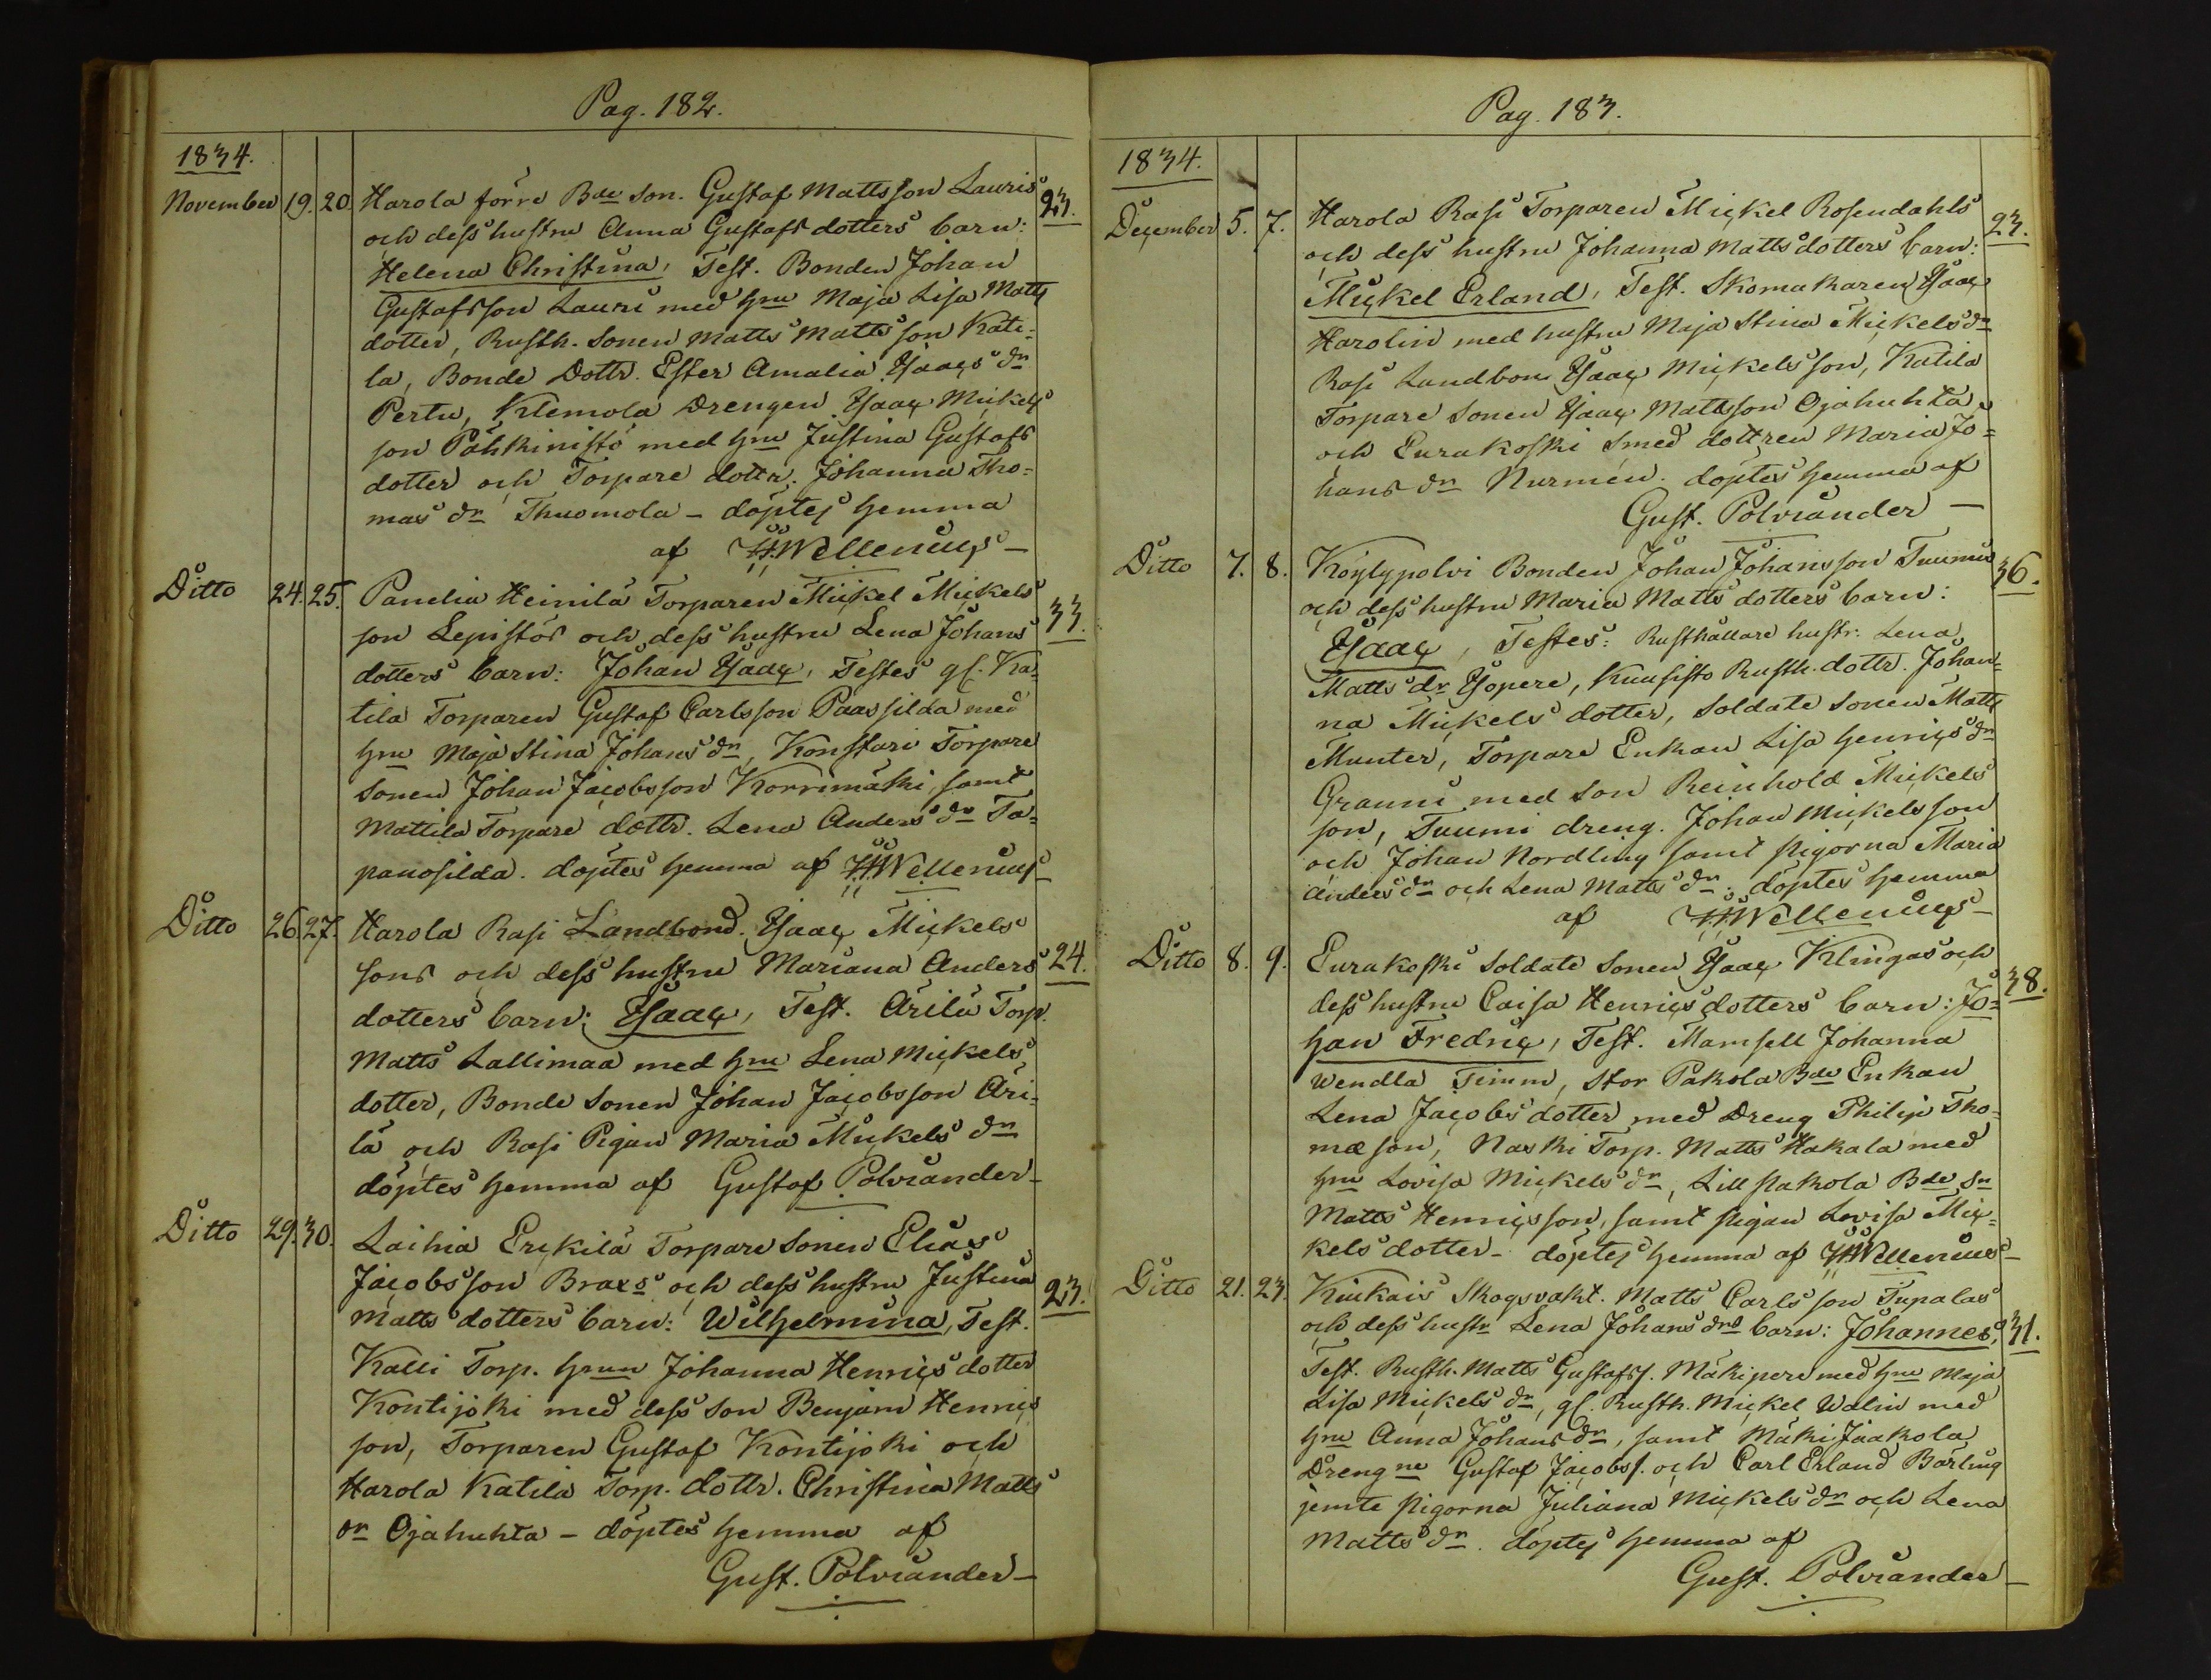 Pag. 182.
1834.
November 19. 20. Harola förre Bde Son. Gustaf Mattsson Lauris 23.
och dess hustru Anna Gustafs dotters barn:
Helena Christina, Test. Bonden Johan
Gustafsson Lauri med Hru Maja Lisa Matts
dotter, Rusth. Sonen Matts Mattsson Kati-
la, Bonde Dottr. Ester Amalia Isaacs dr
Pertu, Klemola Drengen Isaac Mickels
son Pähkinistö med Hru Justina Gustafs
dotter och Torpare dottr. Johanna Tho-
mas dr Thuomola - döptes hemma
af H. Wellenius -
Ditto 24. 25. Panelia Heinilä Torparen Mickel Mickels
son Lepistös och dess hustru Lena Johans 33.
dotters barn: Johan Isaac, Testes gl. Ka-
tila Torparen Gustaf Carlsson Paassilda med
Hru Maja Stina Johans dr, Konstari Torpare
Sonen Johan Jacobsson Korrimäki, samt
Mattila Torpare dottr. Lena Anders dr Ta-
panosilda. döptes hemma af H. Wellenius
Ditto 26. 27. Harola Rasi Landbond. Isaac Mickels
sons och dess hustru Mariana Anders 24.
dotters barn: Isaac, Test. Ärilä Torp.
Matts Lallimaa med Hru Lena Mickels
dotter, Bonde Sonen Johan Jacobsson Äri-
lä och Rasi Pigan Maria Mickels dr
döptes hemma af Gustaf Polviander -
Ditto 29. 30. Laihia Erckilä Torpare Sonen Elias
Jacobsson Braxs och dess hustru Justina 23.
Matts dotters barn: Wilhelmina, Test.
Kalli Torp. Hrun Johanna Henrics dotter
Kontijoki med dess Son Benjam Henrics
son, Torparen Gustaf Kontijoki och
Harola Katila Torp. dottr. Christina Matts
dr Ojahuhta - döptes hemma af
Gust. Polviander -
Pag. 183.
1834.
December 5. 7. Harola Rasi Torparen Mickel Rosendahls 23.
och dess hustru Johanna Matts dotters barn:
Mickel Erland, Test. Skomakaren Isaac
Harolin med hustru Maja Stina Mickels dr
Rasi Landbon Isaac Mickelsson, Katila
Torpare Sonen Isaac Mattsson Ojahuhta
och Eurakoski Smed dottren Maria Jo-
hans dr Nurmen. döptes hemma af
Gust. Polviander -
Ditto 7. 8. Köylypolvi Bonden Johan Johansson Tuumis 36.
och dess hustru Maria Matts dotters barn:
Isaac, Testes: Rusthållare hustr. Lena
Matts dr Isopere, Kuusisto Rusth. dottr. Johan-
na Mickels dotter, Soldate Sonen Matts
Munter, Torpare Enkan Lisa Henrics dr
Granni med Son Reinhold Mickels
son, Tuumi dreng. Johan Mickelsson
och Johan Nordling samt pigorna Maria
Anders dr och Lena Matts dr. döptes hemma
af H. Wellenius -
Ditto 8. 9. Eurakoski Soldate Sonen Isaac Klingas och 38.
dess hustru Caisa Henrics dotters barn: Jo-
han Fredric, Test. Mamsell Johanna
Wendla Timm, Stor Pakola Bde Enkan
Lena Jacobs dotter med Dreng Philip Tho-
mæson, Naski Torp. Matts Hakala med
Hru Lovisa Mickels dr, Lill pakola Bde Sn
Matts Henricsson, samt pigan Lovisa Mic-
kels dotter - döptes hemma af H. Wellenius -
Ditto 21. 23. Kiukais Skogsvakt. Matts Carlsson Tupalas
och dess hustr Lena Johans drs barn: Johannes, 31.
Test. Rusth. Matts Gustafs s. Mäkipere med Hru Maja
Lisa Mickels dr, gl. Rusth. Mickel Walin med
Hru Anna Johans dr, samt Mäki Jaakola
Drengne Gustaf Jacobs s. och Carl Erland Bärling
jemte pigorna Juliana Mickels dr och Lena
Matts dr. döptes hemma af
Gust. Polviander -